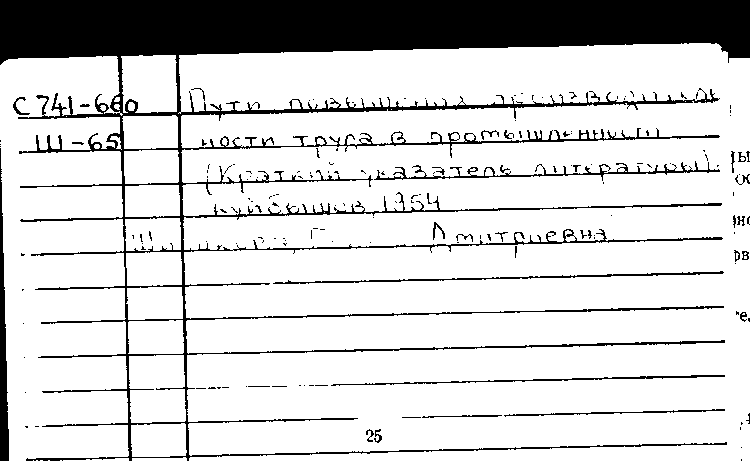 С 741-660 Пути повышения производитель
Ш-65 ности труда в промышленности
(Краткий указатель литературы).
Куйбышев, 1954
Дмитриевна
25